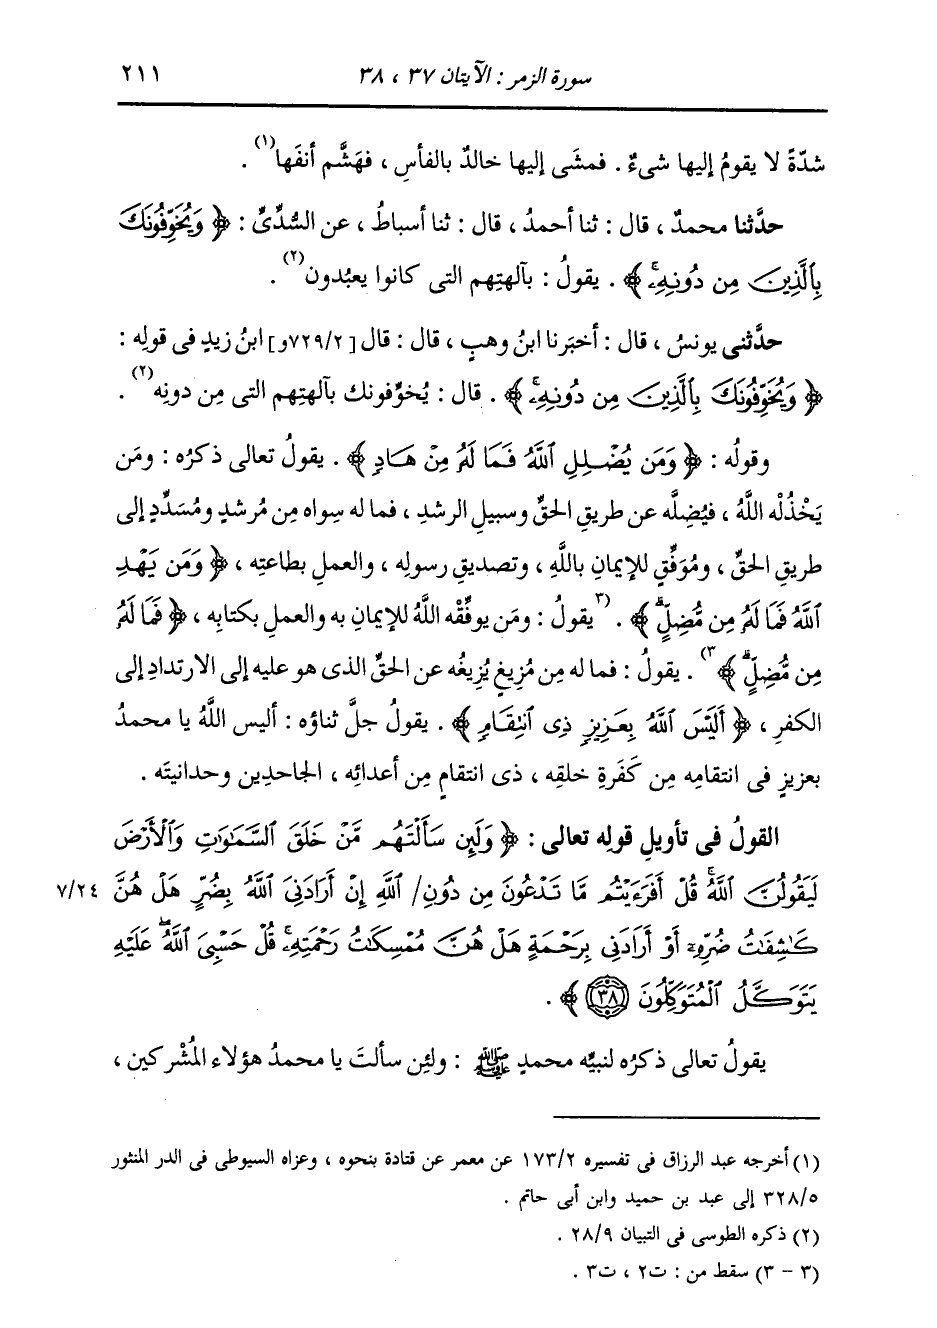 سورة الزمر : الآيتان ٣٧ ، ٣٨ ٢١١
شدّةً لا يقومُ إليها شىءٌ . فمشَى إليها خالدٌ بالفأسِ ، فهَشَّم أنفَها(١) .
حدَّثنا محمدٌ ، قال : ثنا أحمدُ ، قال : ثنا أسباطُ ، عن السُّدِّىِّ : ﴿ وَيُخَوِّفُونَكَ
بِالَّذِينَ مِن دُونِهِۦ ﴾ . يقولُ : بآلهتِهم التى كانوا يعبُدون(٢) .
حدَّثنى يونسُ ، قال : أخبَرنا ابنُ وهبٍ ، قال : قال [٧٢٩/٢و] ابنُ زيدٍ فى قولِه :
﴿ وَيُخَوِّفُونَكَ بِالَّذِينَ مِن دُونِهِۦ ﴾ . قال : يُخوِّفونك بآلهتِهم التى مِن دونِه(٢) .
وقولُه : ﴿ وَمَن يُضْلِلِ اللَّهُ فَمَا لَهُ مِنْ هَادٍ ﴾ . يقولُ تعالى ذكرُه : ومَن
يَخْذُلْه اللَّهُ ، فيُضِلَّه عن طريقِ الحقِّ وسبيلِ الرشدِ ، فما له سِواه مِن مُرشدٍ ومُسَدِّدٍ إلى
طريقِ الحقِّ ، ومُوَفِّقٍ للإيمانِ باللَّهِ ، وتصديقِ رسولِه ، والعملِ بطاعتِه ، ﴿ وَمَن يَهْدِ
اللَّهُ فَمَا لَهُ مِن مُّضِلٍّ ﴾ . (٣يقولُ : ومَن يوفِّقْه اللَّهُ للإيمانِ به والعملِ بكتابِه ، ﴿ فَمَا لَهُ
مِن مُّضِلٍّ ﴾٣) . يقولُ : فما له مِن مُزِيغٍ يُزِيغُه عن الحقِّ الذى هو عليه إلى الارتدادِ إلى
الكفرِ ، ﴿ أَلَيْسَ اللَّهُ بِعَزِيزٍ ذِى انتِقَامٍ ﴾ . يقولُ جلَّ ثناؤه : أليس اللَّهُ يا محمدُ
بعزيزٍ فى انتقامِه مِن كَفَرةِ خلقِه ، ذى انتقامٍ مِن أعدائِه ، الجاحدِين وحدانيتَه .
القولُ فى تأويلِ قولِه تعالى : ﴿ وَلَئِن سَأَلْتَهُم مَّنْ خَلَقَ السَّمَٰوَٰتِ وَالْأَرْضَ
لَيَقُولُنَّ اللَّهُ قُلْ أَفَرَءَيْتُم مَّا تَدْعُونَ مِن دُونِ/ اللَّهِ إِنْ أَرَادَنِىَ اللَّهُ بِضُرٍّ هَلْ هُنَّ ٧/٢٤
كَٰشِفَٰتُ ضُرِّهِۦٓ أَوْ أَرَادَنِى بِرَحْمَةٍ هَلْ هُنَّ مُمْسِكَٰتُ رَحْمَتِهِۦ قُلْ حَسْبِىَ اللَّهُ عَلَيْهِ
يَتَوَكَّلُ الْمُتَوَكِّلُونَ ٣٨ ﴾ .
يقولُ تعالى ذكرُه لنبيِّه محمدٍ ﷺ : ولئِن سألتَ يا محمدُ هؤلاء المُشْركين ،
(١) أخرجه عبد الرزاق فى تفسيره ١٧٣/٢ عن معمر عن قتادة بنحوه ، وعزاه السيوطى فى الدر المنثور
٣٢٨/٥ إلى عبد بن حميد وابن أبى حاتم .
(٢) ذكره الطوسى فى التبيان ٢٨/٩ .
(٣ - ٣) سقط من : ت٢ ، ت٣ .